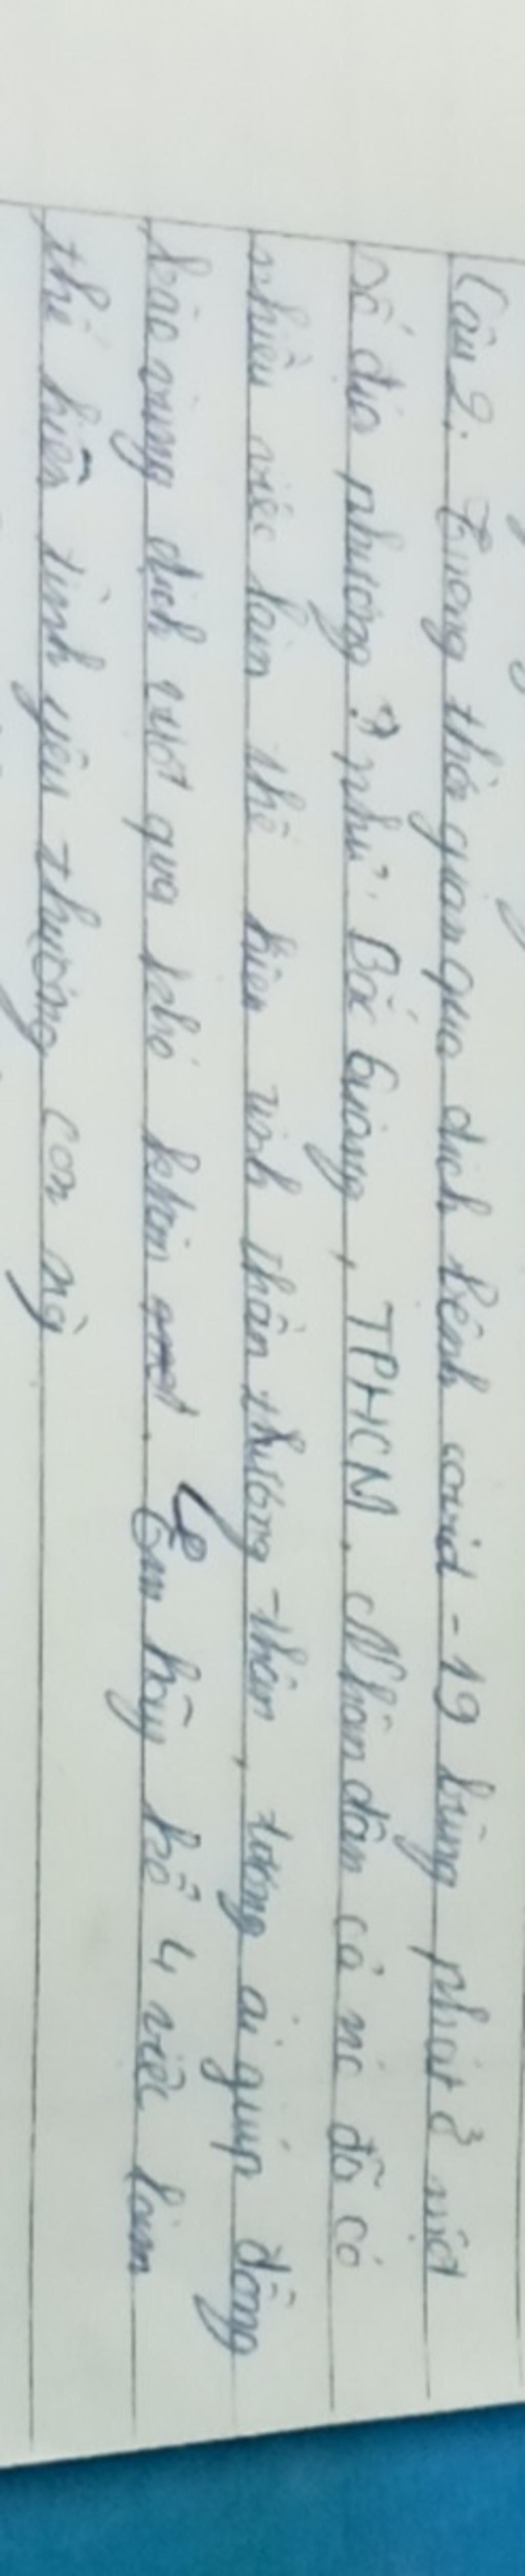 Câu 2. Trong thời gian qua dịch bệnh covid - 19 bùng phát ở một
số địa phương ? như: Bắc Giang, TPHCM. Nhân dân cả nc đã có
nhiều việc làm thể hiện tinh thần thương thân, tương ái giúp đồng
bào vùng dịch vượt qua khó khăn. Em hãy kể 4 việc làm
thể hiện tình yêu thương con ng